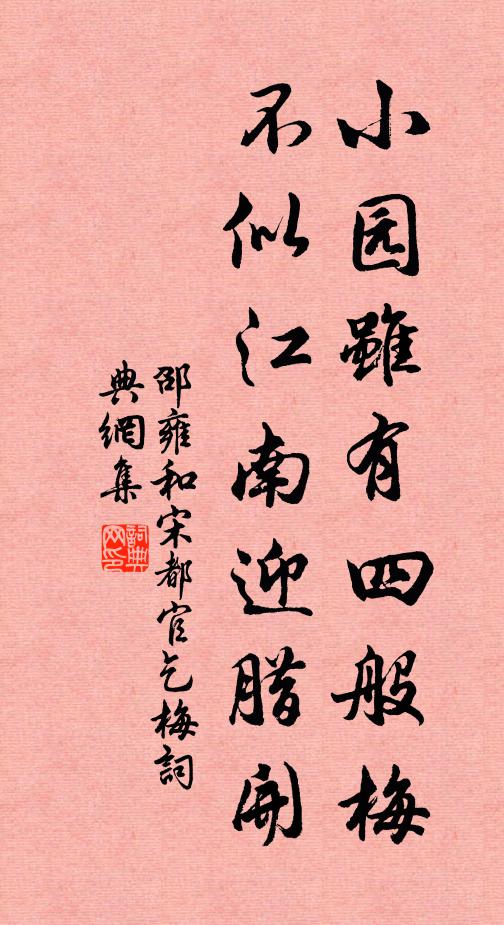 小园雖有四般梅
不似江南迎腊開
邵雍和宋都官乞梅詞
典網集
詞典
网印